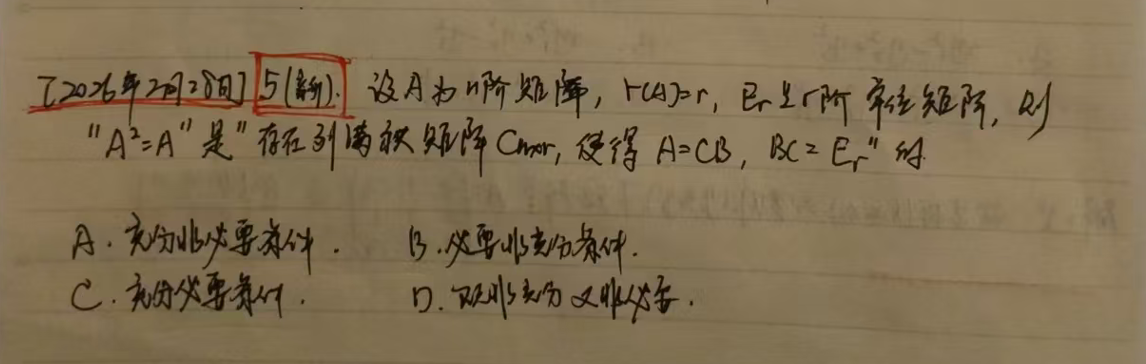 [2026年2月28日] 5(新). 设A为n阶矩阵, r(A)=r, Er是r阶单位矩阵, 则
"A²=A"是"存在列满秩矩阵Cn×r, 使得 A=CB, BC=Er"的
A. 充分非必要条件. B. 必要非充分条件.
C. 充分必要条件. D. 既非充分又非必要.